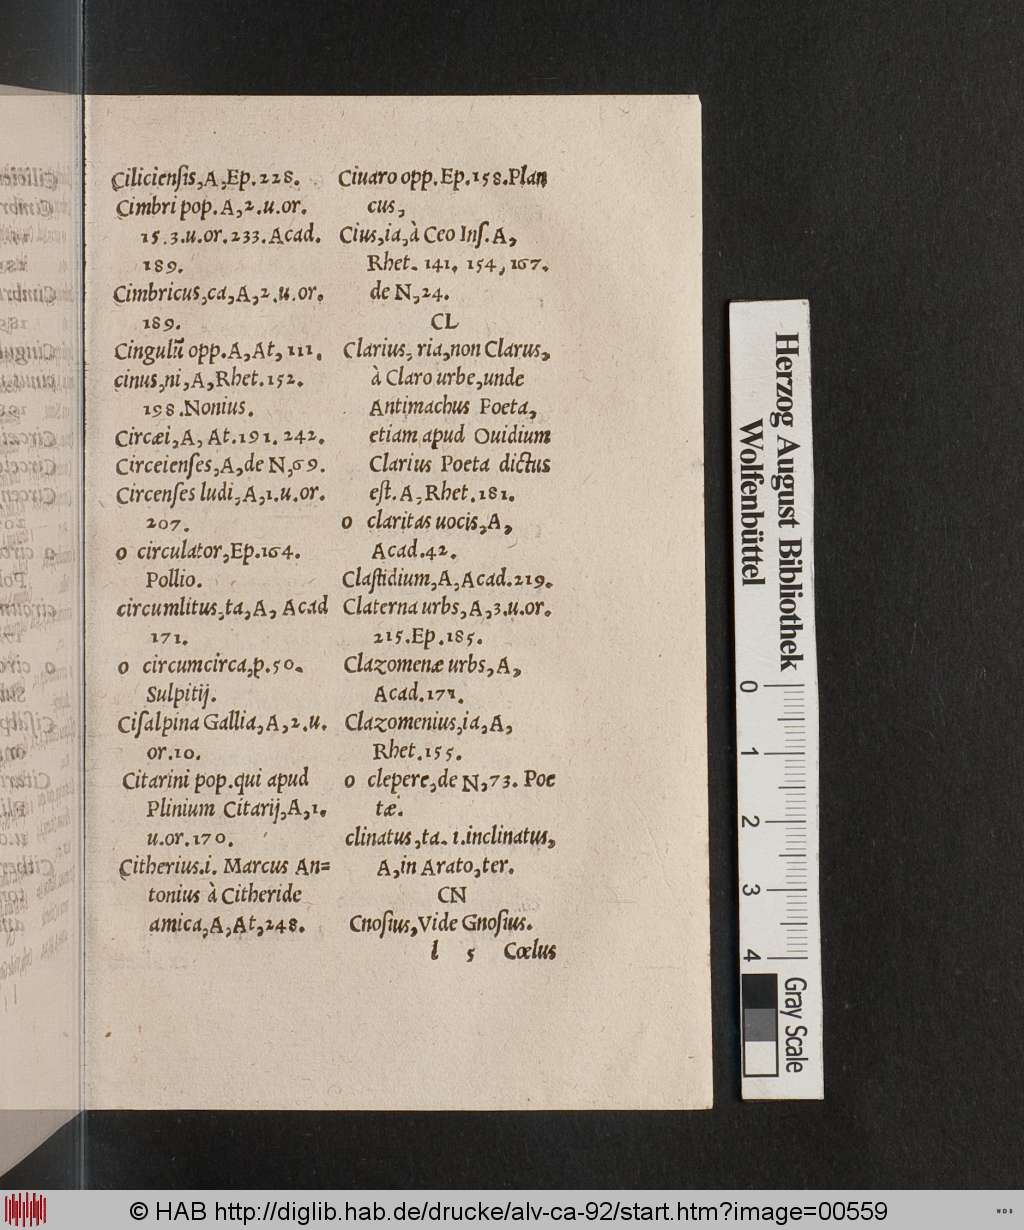 Ciliciensis,A,Ep.228.
Cimbri pop.A,2.u.or.
15.3.u.or.233.Acad.
189.
Cimbricus,ca,A,2.u.or.
189.
Cingulū opp.A,At,111.
cinus,ni,A,Rhet.152.
198.Nonius.
Circæi,A, At.191.242.
Circeienſes,A,de N,69.
Circenſes ludi,A,1.u.or.
207.
o circulator,Ep.164.
Pollio.
circumlitus,ta,A, Acad
171.
o circumcirca,p.50.
Sulpitij.
Ciſalpina Gallia,A,2.u.
or.10.
Citarini pop.qui apud
Plinium Citarij,A,1.
u.or.170.
Citherius.i. Marcus An=
tonius à Citheride
amica,A,At,248.
Ciuaro opp.Ep.158.Plan
cus,
Cius,ia,à Ceo Inſ.A,
Rhet. 141. 154, 167.
de N,24.
CL
Clarius, ria,non Clarus,
à Claro urbe,unde
Antimachus Poeta,
etiam apud Ouidium
Clarius Poeta dictus
eſt.A,Rhet.181.
o claritas uocis,A,
Acad.42.
Claſtidium,A,Acad.219.
Claterna urbs,A,3.u.or.
215.Ep.185.
Clazomenæ urbs,A,
Acad.171.
Clazomenius,ia,A,
Rhet.155.
o clepere,de N,73. Poe
tæ.
clinatus,ta. i.inclinatus,
A,in Arato,ter.
CN
Cnoſius,Vide Gnoſius.
l 5 Cœlus
Herzog August Bibliothek
Wolfenbüttel
0 1 2 3 4
Gray Scale
© HAB http://diglib.hab.de/drucke/alv-ca-92/start.htm?image=00559